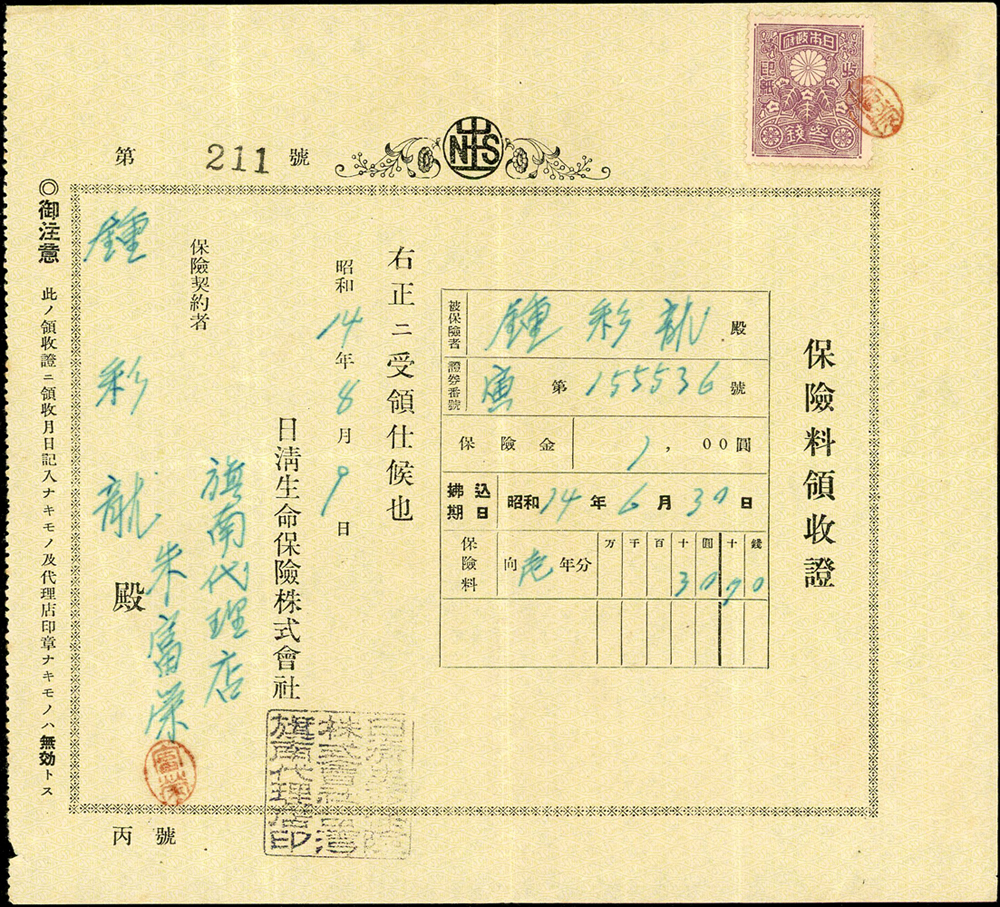 日本政府
收入
印紙
参錢
第 211 號
NS
保險料領收證
被保險者 鍾彩龍 殿
證券番號 寅 第 155536 號
保險金 1,00圓
拂込期日 昭和14年6月30日
保險料 向壱年分 万千百十圓十錢
3090
右正ニ受領仕候也
昭和14年8月9日
日淸生命保險株式會社
旗南代理店
朱富榮
富榮
保險契約者
鍾彩龍 殿
◎御注意 此ノ領收證ニ領收月日記入ナキモノ及代理店印章ナキモノハ無効トス
丙號
旗南代理店印